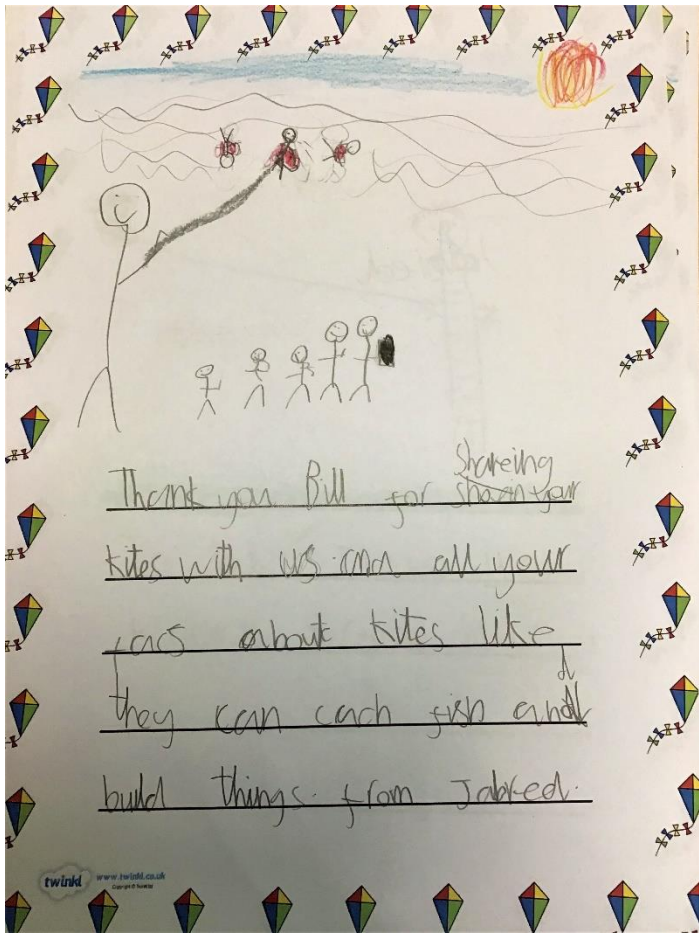 Shareing
Thank you Bill for sharin your
kites with us. and all your
facs about kites like
they can cach fish and
build things. from Jabred.
twinkl www.twinkl.co.uk